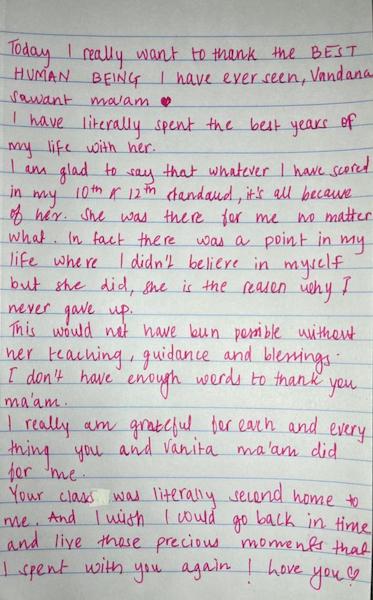 Today I really want to thank the BEST
HUMAN BEING I have ever seen, Vandana
Sawant ma'am ♥
I have literally spent the best years of
my life with her.
I am glad to say that whatever I have scored
in my 10th & 12th standard, it's all because
of her. She was there for me no matter
what. In fact there was a point in my
life where I didn't believe in myself
but she did, she is the reason why I
never gave up.
This would not have been possible without
her teaching, guidance and blessings.
I don't have enough words to thank you
ma'am.
I really am grateful for each and every
thing you and Vanita ma'am did
for me.
Your class was literally second home to
me. And I wish I could go back in time
and live those precious moments that
I spent with you again ! Love you ♡